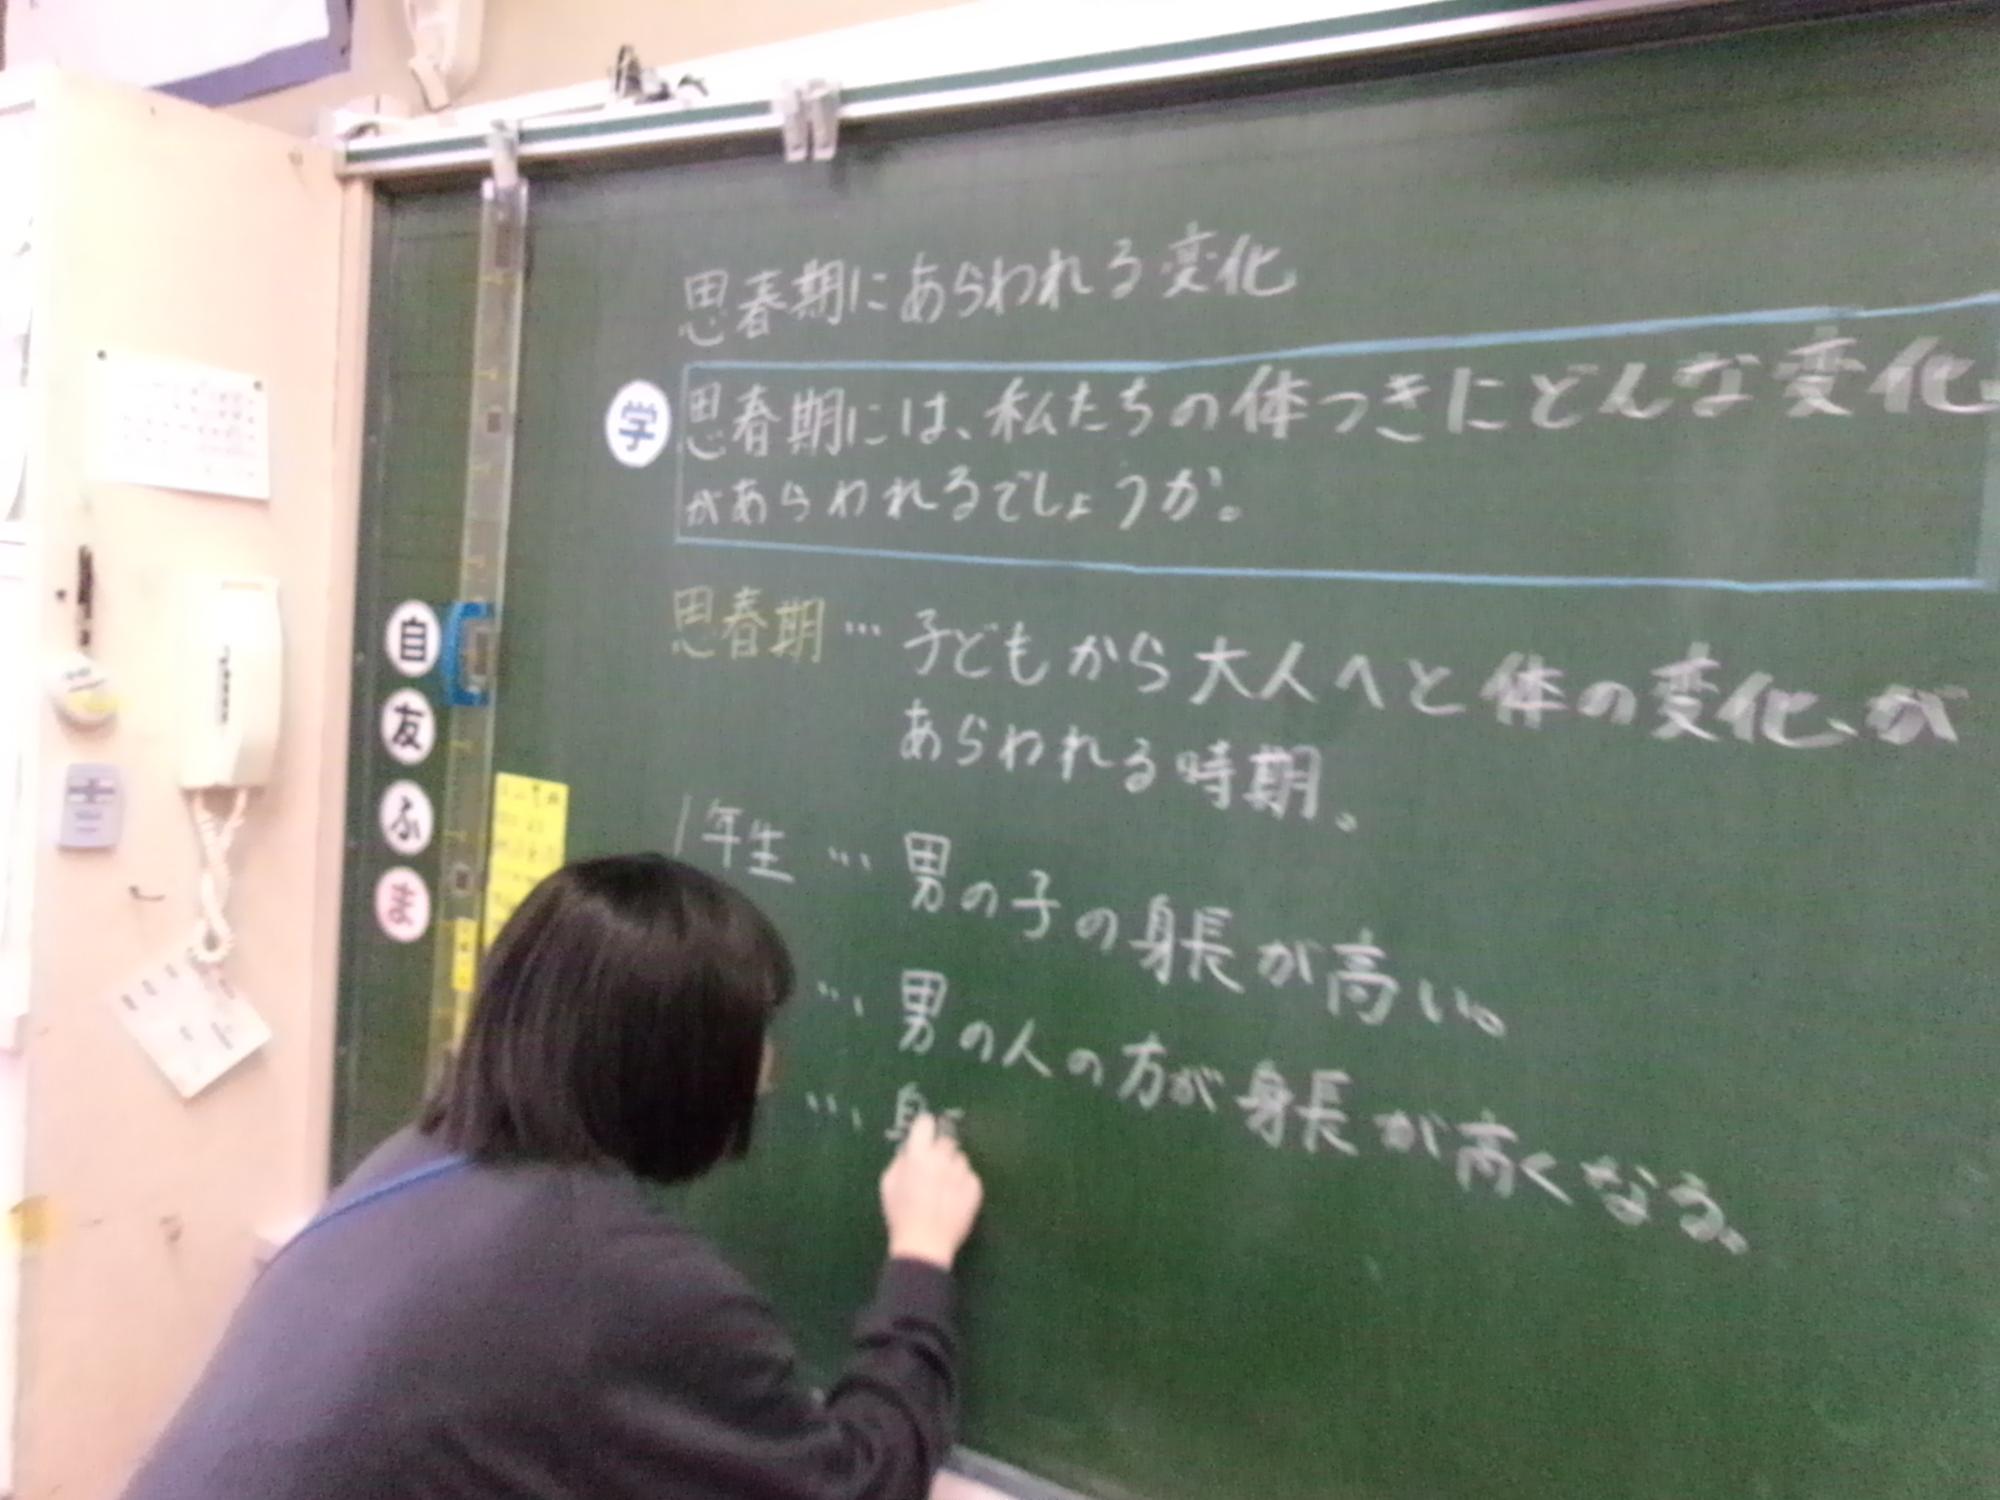 思春期にあらわれる変化
学
思春期には、私たちの体つきにどんな変化
があらわれるでしょうか。
思春期…子どもから大人へと体の変化が
あらわれる時期。
1年生…男の子の身長が高い。
…男の人の方が身長が高くなる。
…身
自
友
ふ
ま